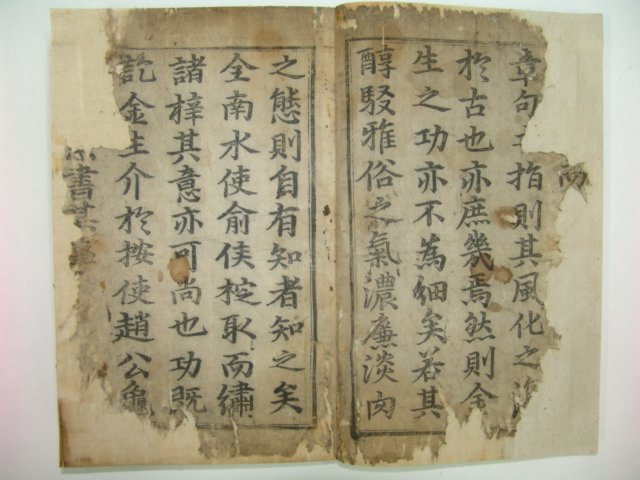 章句之指則其風化之
於古也亦庶幾焉然則全
生之功亦不為細矣若其
醇駁雅俗之氣濃廉淡肉
之態則自有知者知之矣
全南水使俞侯椌取而繡
諸梓其意亦可尚也功既
訖金圭介於按使趙公龜
書其